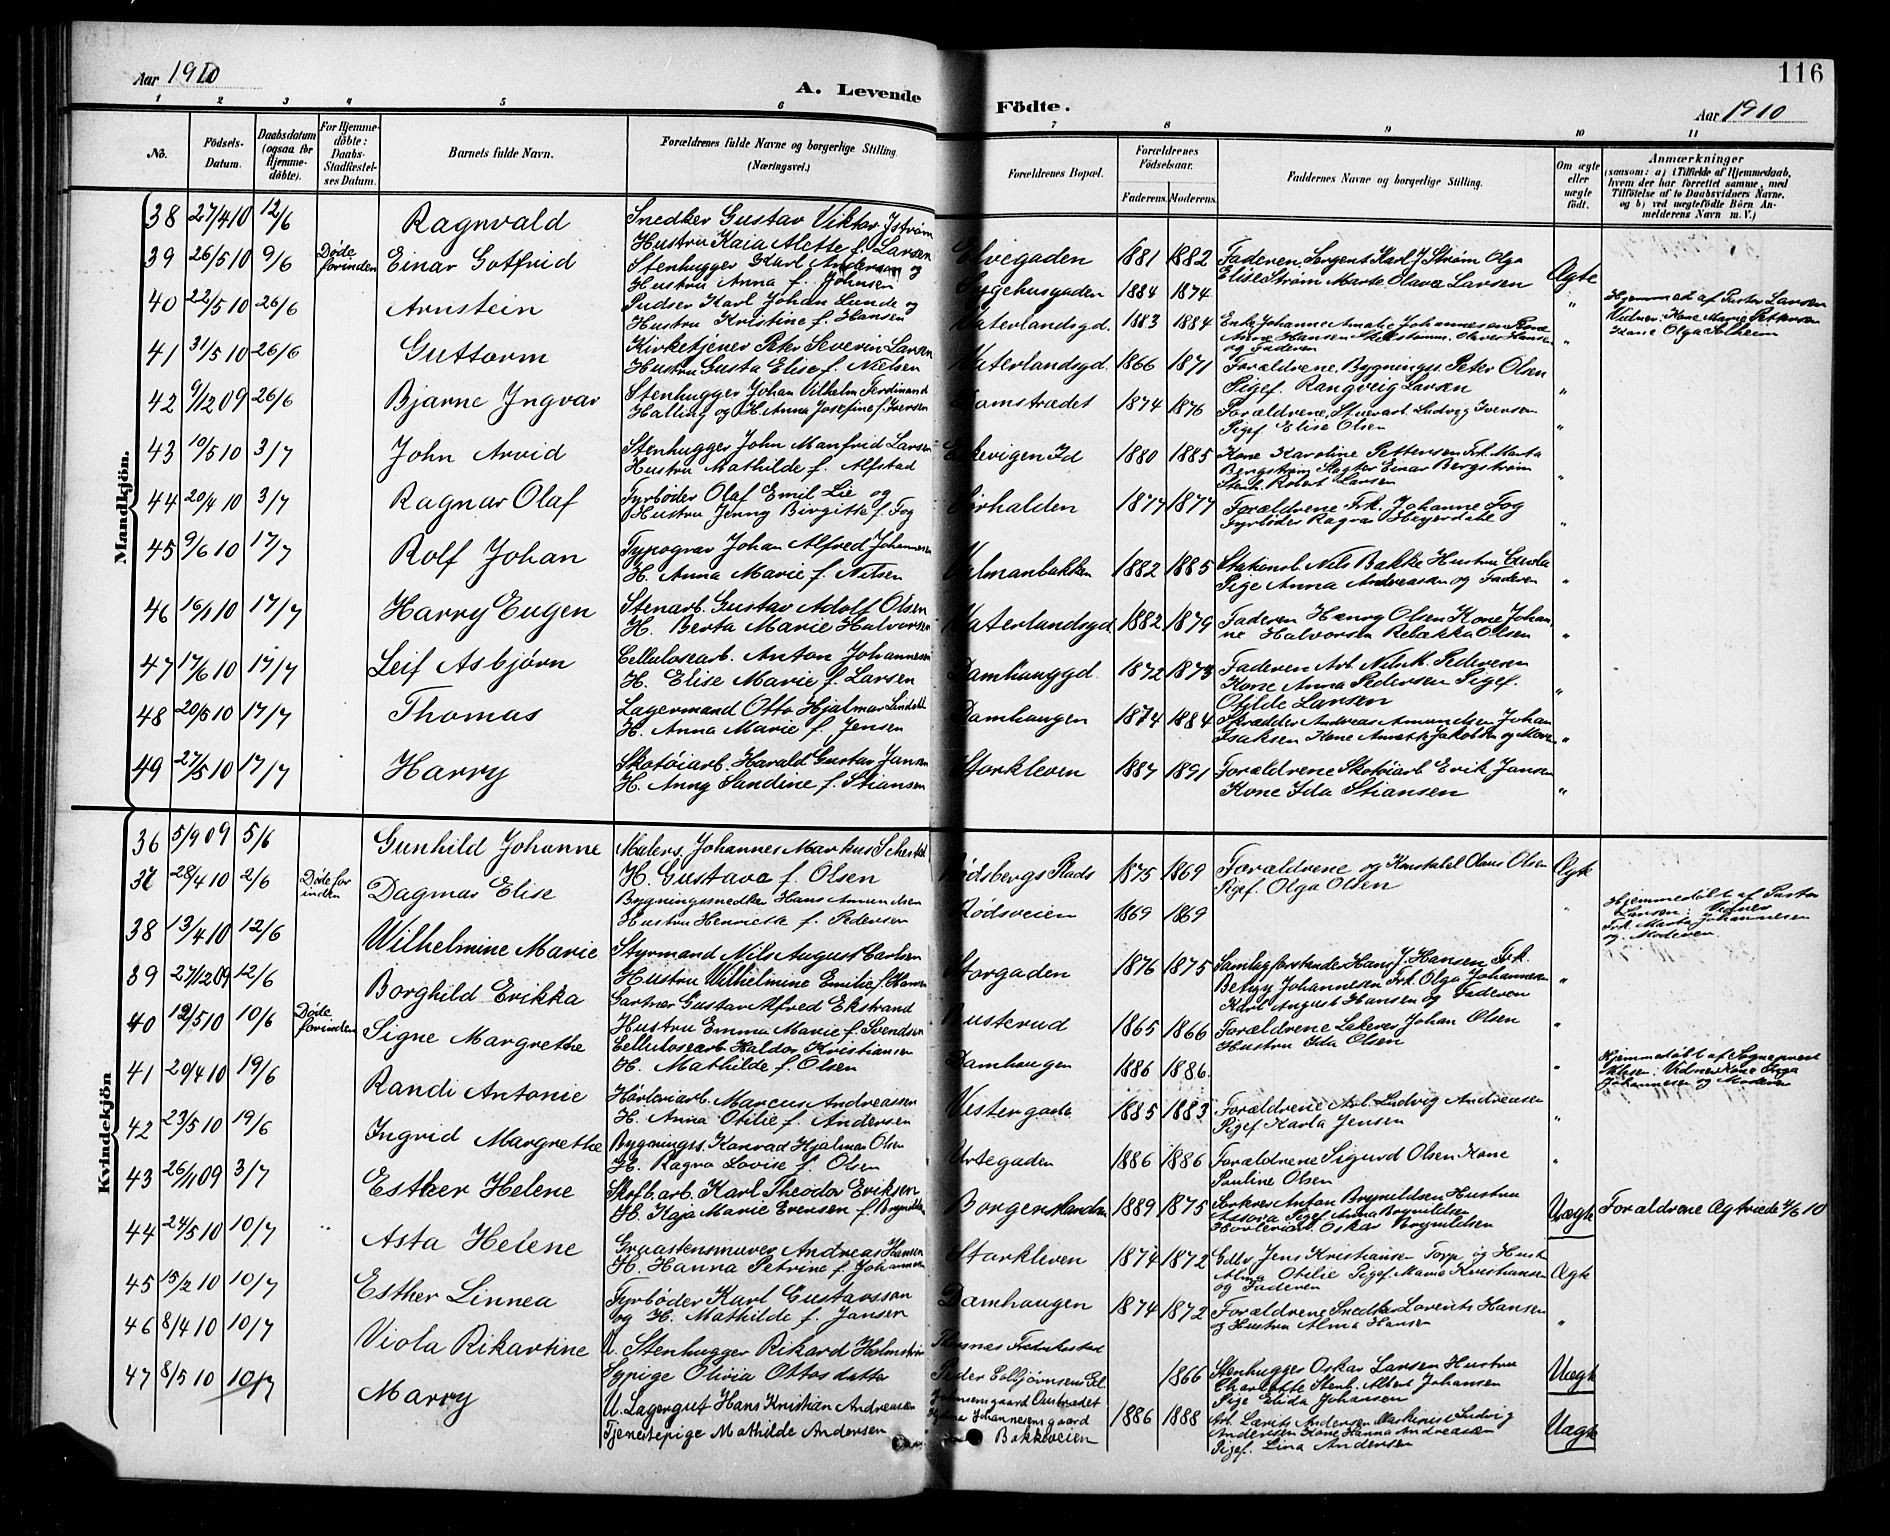 Aar 1910
A. Levende
Födte.
116
Aar 1910
1 2 3 4 5 6 7 8 9 10 11
No.
Födsels-Datum.
Daabsdatum (ogsaa for Hjemme-döbte).
For Hjemme-döbte: Daabs-Stadfæstel-ses Datum.
Barnets fulde Navn.
Forældrenes fulde Navne og borgerlige Stilling. (Næringsvei.)
Forældrenes Bopæl.
Forældrenes Födselsaar.
Faderens. Moderens.
Faddernes Navne og borgerlige Stilling.
Om ægte eller uægte födt.
Anmærkninger
(saasom: a) i Tilfælde af Hjemmedaab, hvem der har forrettet samme, med Tilföielse af to Daabsvidners Navne, og b) ved uægtefödte Börn An-melderens Navn m. V.)
Mandkjön.
38 27/4 10 12/6 Ragnvald Snedker Gustav Viktor Istrøm
Hustru Kaia Alette f. Larsen
Elvegaden 1881 1882 Faderen, Sergent Karl J Strøm Olga
Elise Strøm Marte Olava Larsen Ægte
39 26/5 10 9/6 Døde forinden Einar Gotfrid Stenhugger Karl Andersen og
Hustru Anna f. Johnsen
Sygehusgaden 1884 1874 "
Hjemmed. af Pastor Larsen
Vidner: Kone Marie Pettersen
Kone Olga Solheim
40 22/5 10 26/6 Arnstein Pudser Karl Johan Lunde og
Hustru Kristine f. Hansen
Vaterlandsgd. 1883 1884 Enke Johanne Amalie Johannesen
og Faderen "
41 31/5 10 26/6 Guttorm Kirketjener Peter Severin Larsen
Hustru Gusta Elise f. Nielsen
Vaterlandsgd. 1866 1871 Forældrene, Bygningss. Peter Olsen
Pigef. Rangveig Larsen "
42 9/12 09 26/6 Bjarne Ingvar Stenhugger Johan Vilhelm Ferdinand
Halling og H. Anna Josefine f. Iversen
Damstrædet 1874 1876 Forældrene, Stuerarb. Ludvig Iversen
Pigef. Elise Olsen "
43 19/5 10 3/7 John Arvid Stenhugger John Manfrid Larsen
Hustru Mathilde f. Alfstad
1880 1885 Kone Karoline Pettersen Frk. Marta
Bergstrøm Slagter Einar Bergstrøm
Stenh. Robert Larsen "
44 20/4 10 3/7 Ragnar Olaf Fyrbøder Olaf Emil Lie og
Hustru Jenny Birgitte f. Fog
1877 1877 Forældrene Frk. Johanne Fog
Fyrbøder Ragnar Heyerdahl "
45 9/6 10 17/7 Rolf Johan Typograv Johan Alfred Johannesen
H. Anna Marie f. Nilsen
1882 1885 Stationsb. Nils Bakke Hustru
Pige Anna Andreassen og Faderen "
46 16/1 10 17/7 Harry Eugen Stenarb. Gustav Adolf Olsen
H. Berta Marie Halvorsen
Vaterlandsgd 1882 1879 Faderen Henry Olsen Kone Johan
ne Halvorsen Rebækka Olsen "
47 17/6 10 17/7 Leif Asbjørn Cellulosearb. Anton Johannesen
H. Elise Marie f. Larsen
Damhauggd. 1872 1873 Faderen Arb. Pedersen
Kone Anna Pedersen Pigef.
Otilde Larsen "
48 20/5 10 17/7 Thomas Lagermand Otto Hjalmar
H. Anna Marie f. Jensen
Damhaugen 1874 1884 Skrædder Andreas Amundsen Johan
Isaksen Kone "
49 27/5 10 17/7 Harry Skotøiarb. Harald Gustav Jansen
H. Anny Sandine f. Stiansen
Storkleven 1887 1891 Forældrene Skotøiarb Erik Jansen
Kone Ida Stiansen "
Kvindekjön
36 5/9 09 5/6 Gunhild Johanne Malers. Johannes Markus
H. Gustava f. Olsen
Rødsbergs Plads 1875 1869 Forældrene og Konstabel Olaus Olsen
Pigef. Olga Olsen Ægte
37 28/4 10 2/6 Døde forinden Dagmar Elise Bygningssnedker Hans Amundsen
Hustru Henriette f. Pedersen
Rødsveien 1869 1869 "
Hjemmedøbt af Pastor
Larsen. Vidner
Frk. Marta Johannesen
og Moderen.
38 13/4 10 12/6 Wilhelmine Marie Styrmand Nils August Carlsen
Hustru Wilhelmine Emilie f. Hansen
Storgaden 1876 1875 Samlagsforstander Hans J. Hansen Frk.
Betzy Johannesen Frk. Olga Johannesen
Karl August Hansen og Faderen "
39 27/12 09 12/6 Borghild Erikka Gartner Gustav Alfred Ekstrand
Hustru Emma Marie f. Svendsen
Busterud 1865 1866 Forældrene Lakerer Johan Olsen
Hustru Ida Olsen "
40 12/5 10 10/6 Døde forinden Signe Margrethe Cellulosearb Haldor Kristiansen
H. Mathilde f. Olsen
Damhaugen 1886 1886. "
Hjemmedøbt af Sogneprest
Vidner Kone Olga
Johannesen og Moderen
41 29/4 10 19/6 Randi Antonie Marcus Andreasen
H. Anna Otilie f. Andersen
Vestergade 1885 1883 Forældrene Arb. Ludvig Andreasen
Pigef Karla Jensen "
42 23/5 10 19/6 Ingrid Margrethe Bygningss. Konrad Hjalmar Olsen
H. Ragna Lovise f. Olsen
Urtegaden 1886 1886 Forældrene Sigurd Olsen Kone
Pauline Olsen "
43 26/1 09 3/7 Esther Helene Skofb.arb. Karl Theodor Eriksen
H. Kaja Marie Evensen f Brynildsen
1889 1875 Anton Brynildsen Hustru
Assora Pigef. Anna Brynildsen
Oskar Brynildsen Uægte Forældrene Ægteviede 4/6 10
44 24/5 10 10/7 " Asta Helene Graastensmurer Andreas Hansen
H. Hanna Petrine f. Johannesen
Storkleven 1874 1872 Jens Kristiansen Torp og Hustr
Alma Otilie Pigef. Marie Kristiansen
og Faderen Ægte
45 15/2 10 10/7 Esther Linnea Fyrbøder Karl Gustavsson
og H. Mathilde f. Jansen
Damhaugen 1874 1872 Forældrene Snedker Lorents Hansen
og Hustru Alma Hansen "
46 8/4 10 10/7 Viola Rikartine U. Stenhugger Rikard Holmstrøm
Sypige Olivia Ottosdatter
1866 Stenhugger Oskar Larsen Hustru
Charlotte Stenh. Albert Johansen
Pige Elida Johansen Uægte
47 8/5 10 10/7 Marry U. Lagergut Hans Kristian Andreasen
Tjenestepige Mathilde Andersen
Bakkeveien
1886 1888 Arb. Andersen Maskinist Ludvig
Andersen Kone Hanna Andreasen
Pigef. Lina Andersen Uægte